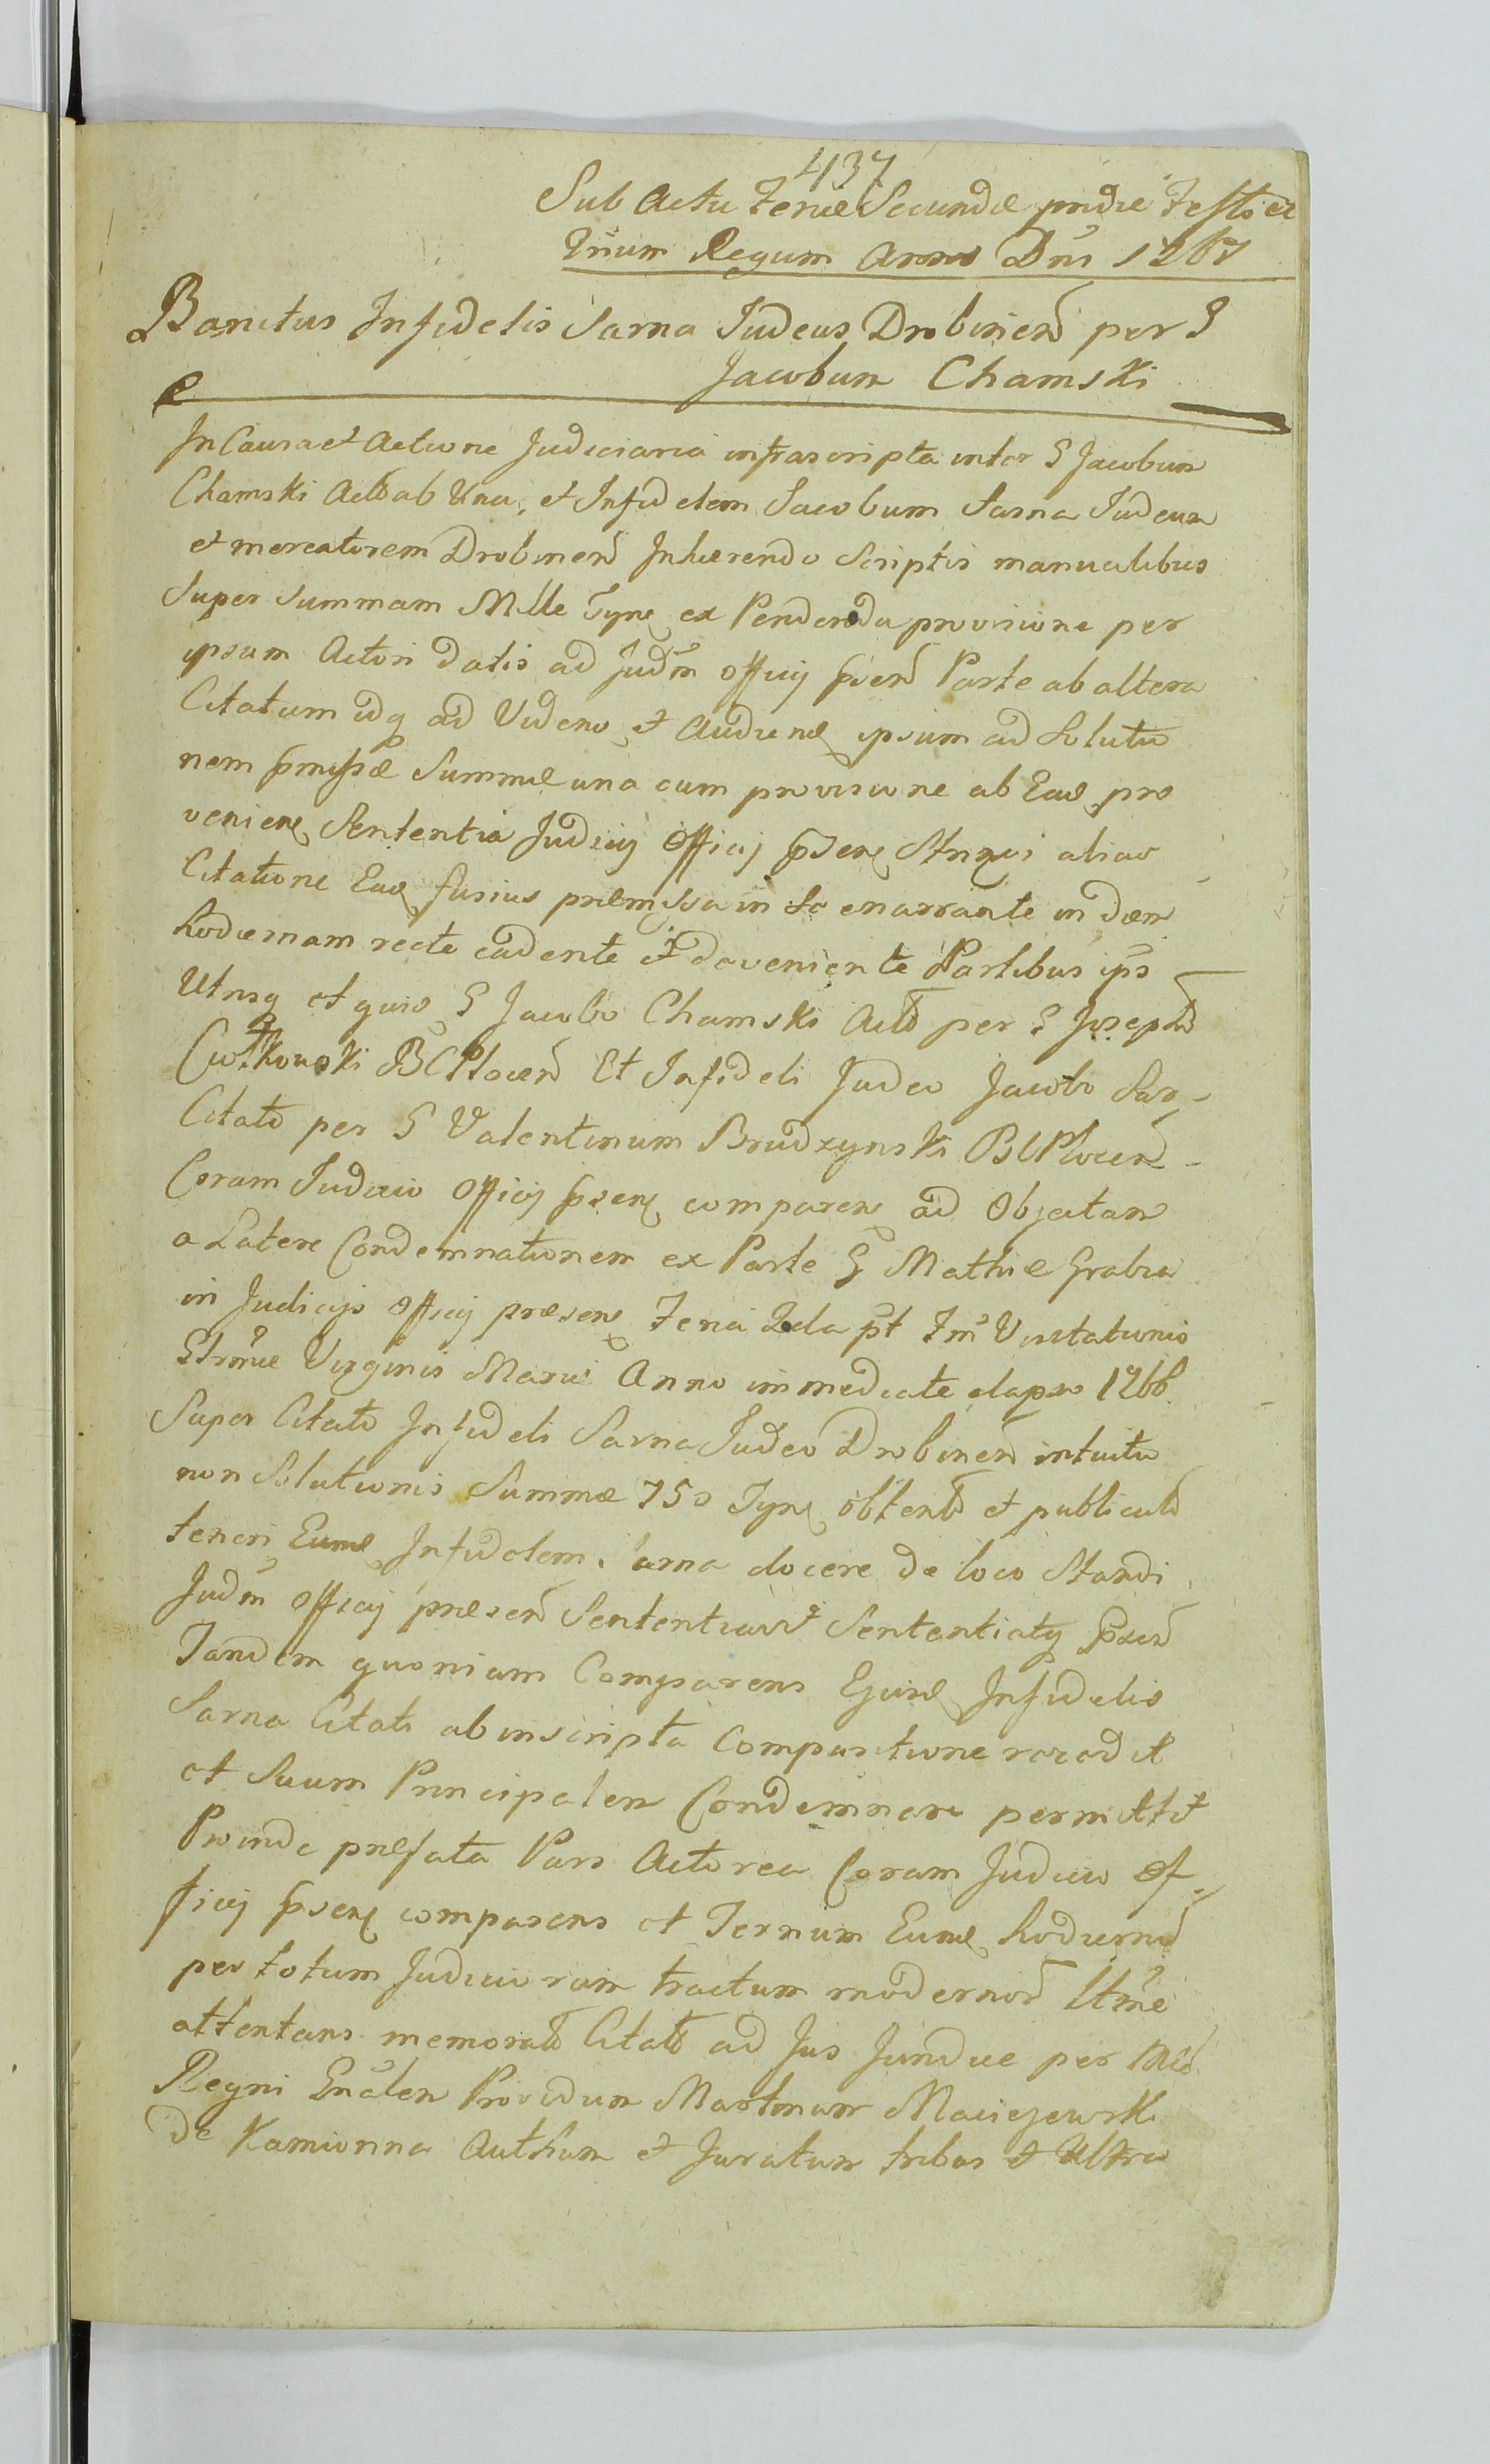 437
Sub Actu Feriæ Secundæ pridie Festi
Trium Regum Anno Dni 1767
Banitus Infidelis Sarna Judeus Drobinen per G
Jacobum Chamski
In Causa et Actione Judiciaria infrascripta inter G Jacobum
Chamski Act ab Una, et Infidelem Jacobum Sarna Judeum
et mercatorem Drobinen Inhærendo Scriptis manualibus
Super Summam Mille Tynf ex Pendenda provisione per
ipsum Actori datis ad Judm Officij psen Parte ab altera
Citatum idq ad Viden et Audien ipsum ad Solutio
nem pmissæ Summæ una cum provisione ab Ead pro
venien Sententia Judicij Officij psen Stringi aliaq
Citatione Ead fusius præmissa in se enarrante in diem
hodiernam recte cadente et deveniente Partibus ips
Utrisq et quis G Jacobo Chamski Act per G Joseph
Cwitkowski BCPlocen Et Infideli Judeo Jacobo Sar
Citato per G Valentinum Brudzynski BCPlocen
Coram Judicio Officij psen comparen ad Objectam
a Latere Condemnationem ex Parte G Mathiæ Grabia
in Judicijs Officij præsen Feria 2da pt Fm Visitationis
Strmæ Virginis Mariæ Anno immediate elapso 1766
Super Citato Infideli Sarna Judeo Drobinen intuitu
non Solutionis Summæ 750 Tynf obtent et publicat
teneri Eund Infidelem arna docere de loco Standi
Judm Officij præsen Sententiavit Sententiatq psen
Tandem quoniam Comparens Ejusd Infidelis
Sarna Citati ab inscripta Comparitione recedit
et Suum Principalem Condemnare permittit
Proinde præfata Pars Actorea Coram Judicio Of
ficij psen comparens et Termum Eund hodiernu
per totum Judiciorum tractum modernor Ltme
attentans memorat Citat ad Jus Jundice per Mld
Regni Gnalem Providum Martinum Maciejewski
de Kamionna Authum et Juratum tribus et Ultra